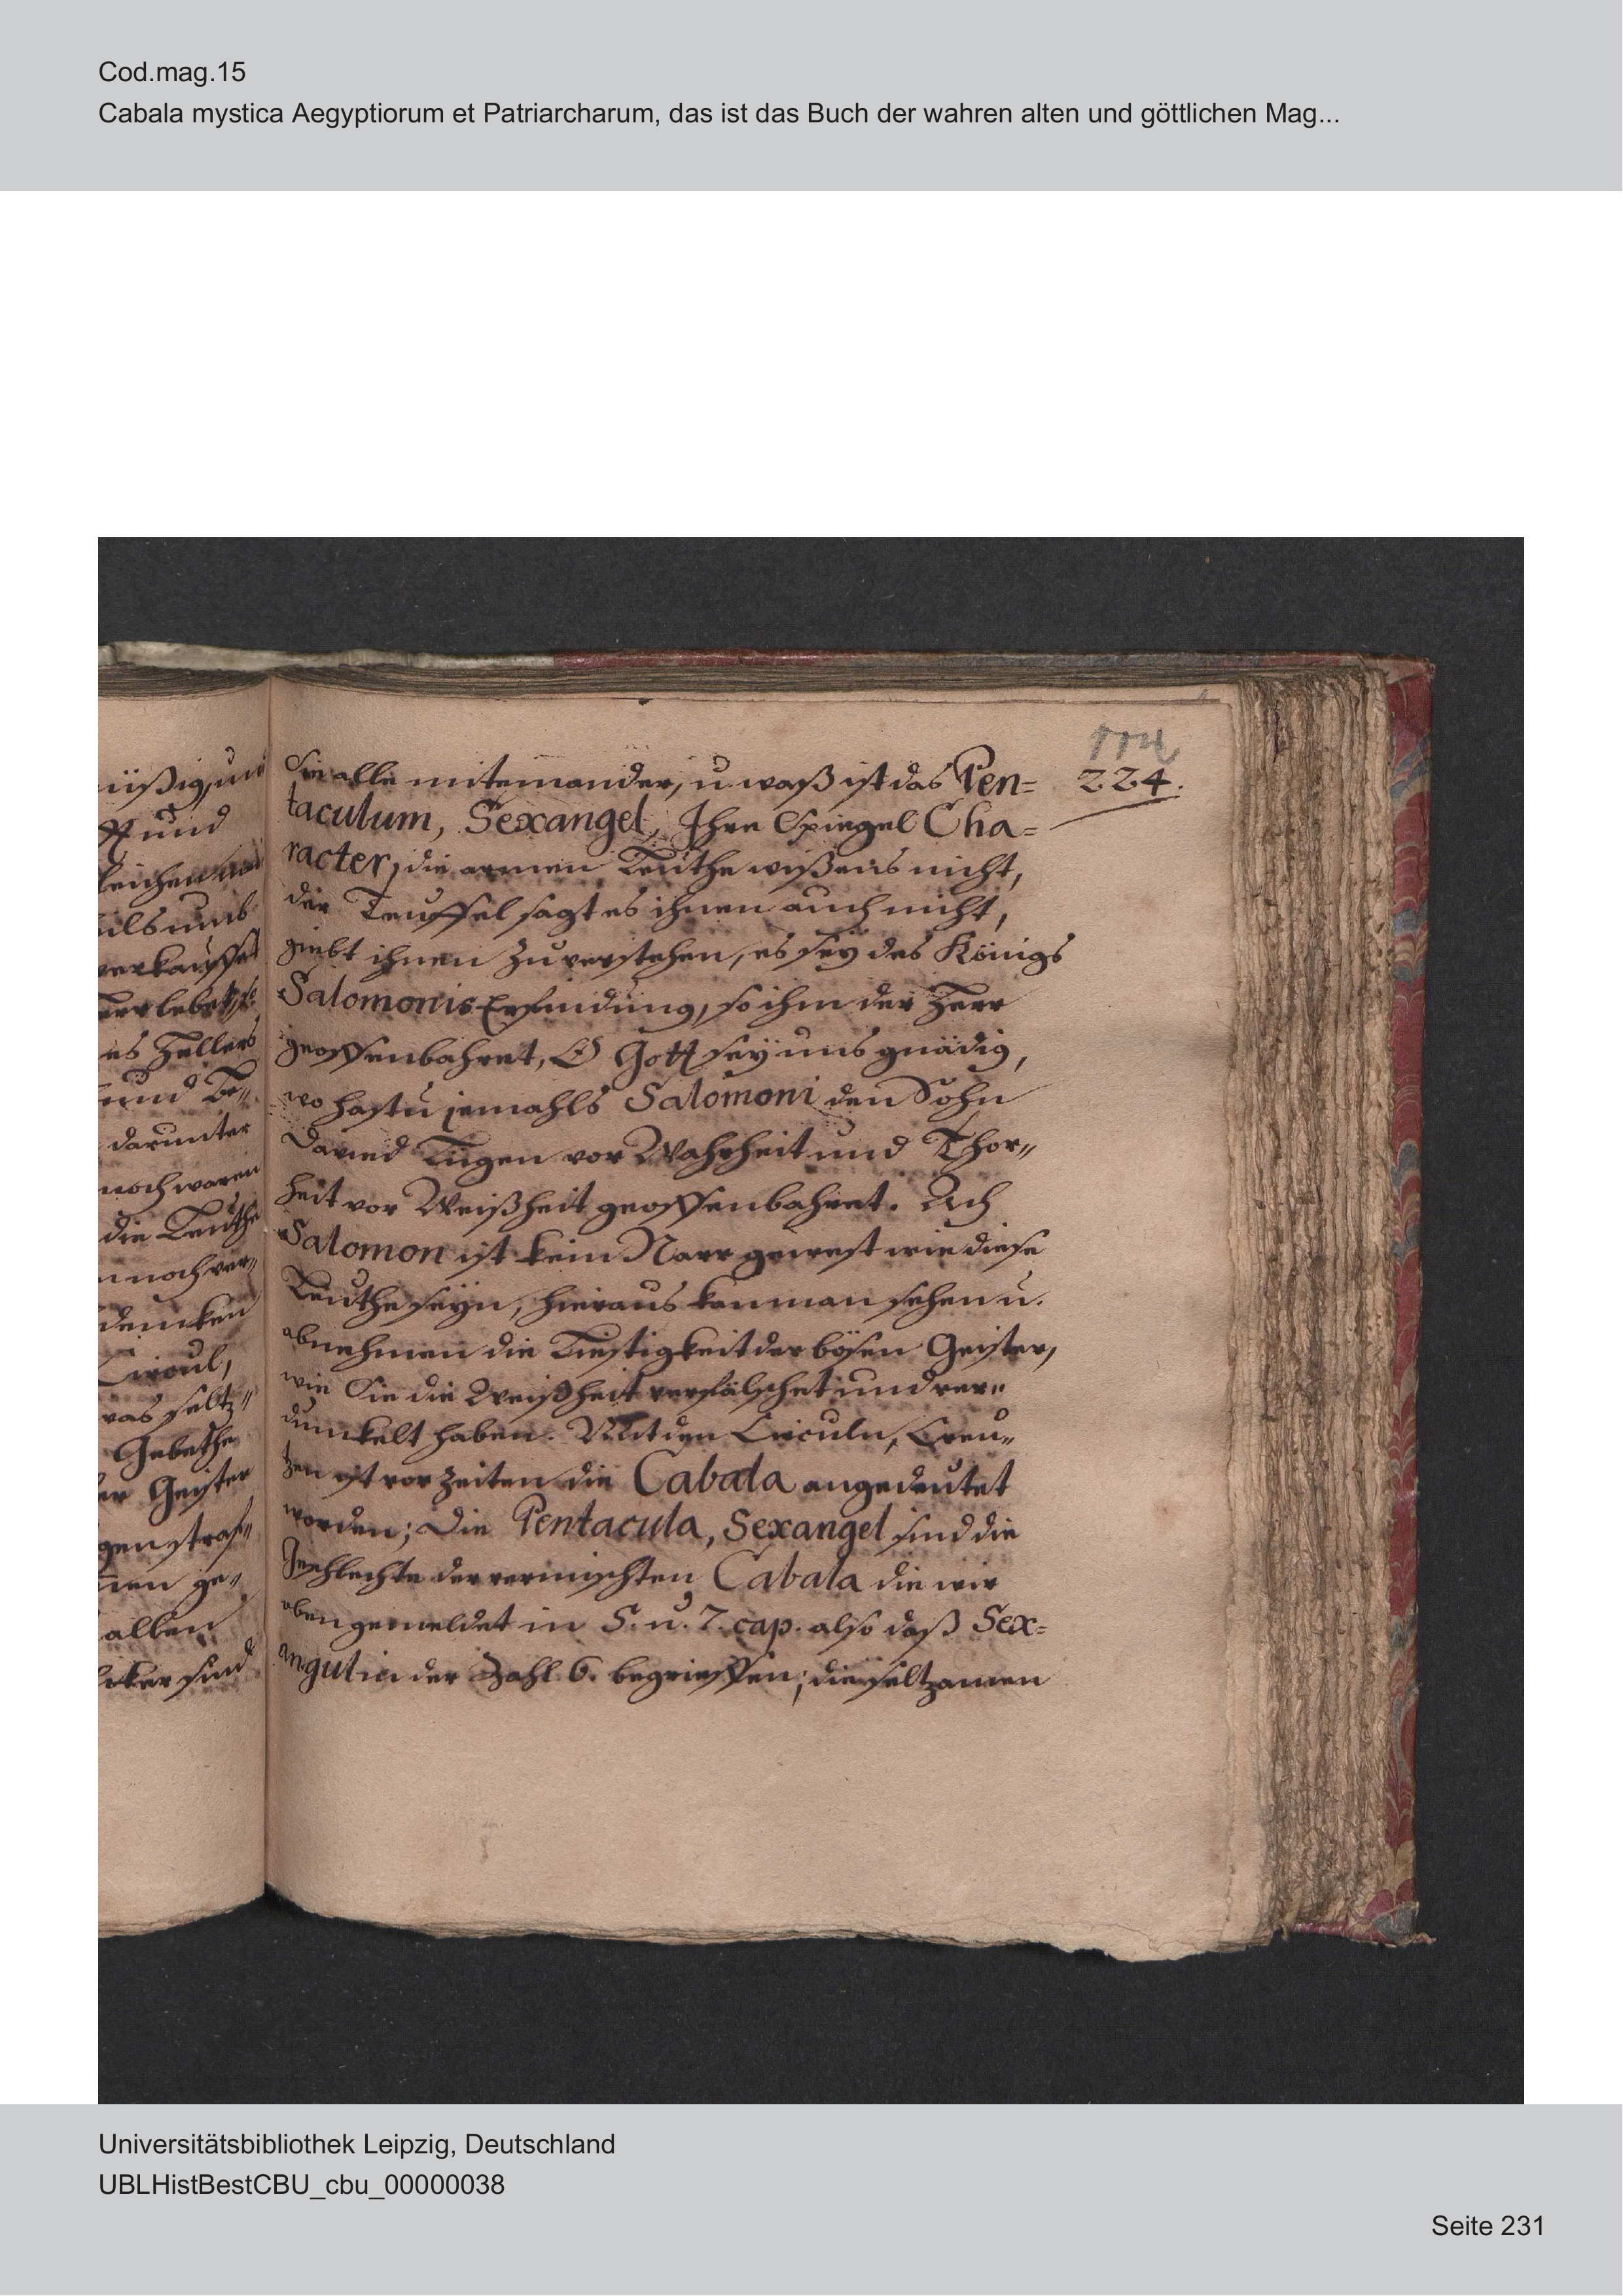 Cod.mag.15
Cabala mystica Aegyptiorum et Patriarcharum, das ist das Buch der wahren alten und göttlichen Mag...
224.
Sie alle miteinander, u. waß ist das Pen=
taculum, Sexangel, Ihre Spiegel Cha=
racter, die armen Leuthe wißens nicht,
der Teuffel sagt es ihnen auch nicht,
giebt ihnen zu verstehen, es seÿ des Königs
Salomonis Erfindung, so ihm der Herr
geoffenbahret, O Gott seÿ uns gnädig,
wo hastu jemahls Salomoni den Sohn
David Lügen vor Wahrheit und Thor„
heit vor Weißheit geoffenbahret. Ach
Salomon ist kein Narr gewest wie diese
Leuthe seÿn, hieraus kan man sehen u.
abnehmen die Liestigkeit der bösen Geister,
wie Sie die Weißheit verfälschet und ver„
dunkelt haben. Mit den Circuln, Creu„
tzen ist vor Zeiten die Cabala angedeutet
worden; Die Pentacula, Sexangel sind die
Geschlechte der vermischten Cabala die wir
oben gemeldet in 5. u. 7. cap. also daß Sex=
angul in der Zahl 6. begrieffen; die seltzamen
üßig, un
und
als uns
verkauffet
es Hellers
und Be„
darunter
noch waren
die Leuthe
noch ver„
dencken
Circul,
was seltz„
Gebethe
er Geister
gen straf„
nen ge„
allen
sind
Universitätsbibliothek Leipzig, Deutschland
UBLHistBestCBU_cbu_00000038
Seite 231